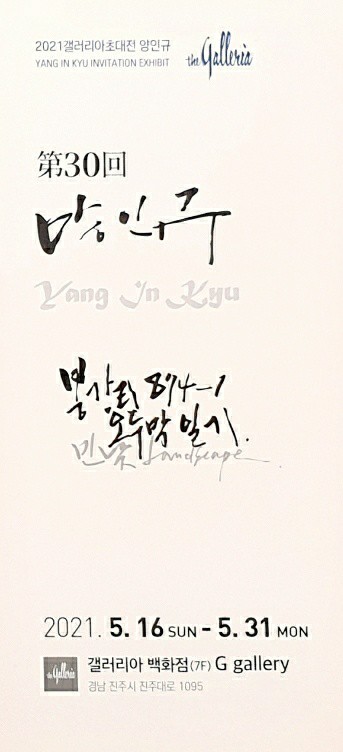 2021갤러리아초대전 양인규
YANG IN KYU INVITATION EXHIBIT
the Galleria
第30回
양인규
Yang In Kyu
봉상리 874-1
오두막 일기.
민낯 Landscape
2021. 5. 16 SUN - 5. 31 MON
the Galleria
갤러리아 백화점(7F) G gallery
경남 진주시 진주대로 1095